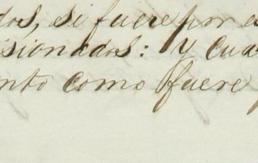 dos, si fuere por e
isionados: y cua
nto como fuere